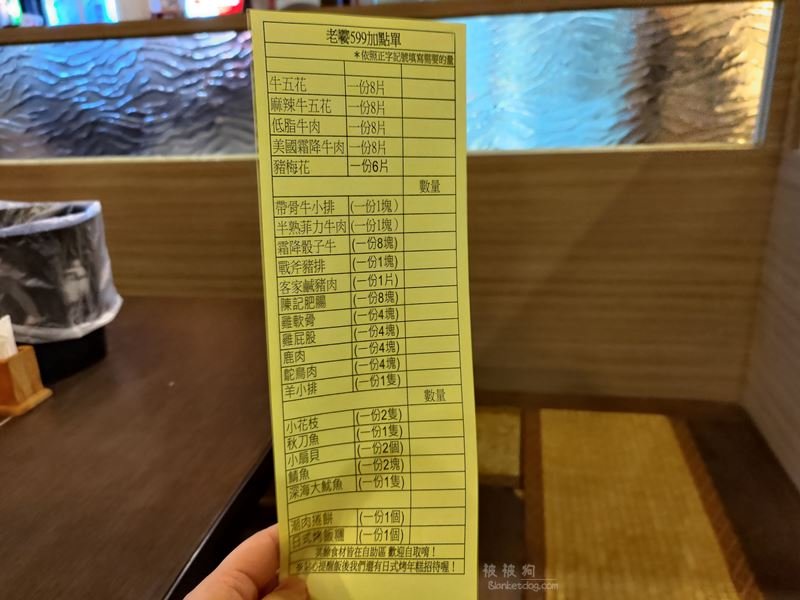 老饕599加點單
*依照正字記號填寫需要的量
牛五花 一份8片
麻辣牛五花 一份8片
低脂牛肉 一份8片
美國霜降牛肉 一份8片
豬梅花 一份6片
數量
帶骨牛小排 (一份1塊)
半熟菲力牛肉 (一份1塊)
霜降骰子牛 (一份8塊)
戰斧豬排 (一份1塊)
客家鹹豬肉 (一份1片)
陳記肥腸 (一份8塊)
雞軟骨 (一份4塊)
雞屁股 (一份4塊)
鹿肉 (一份4塊)
鴕鳥肉 (一份4塊)
羊小排 (一份1隻)
數量
小花枝 (一份2隻)
秋刀魚 (一份1隻)
小扇貝 (一份2個)
鯖魚 (一份2塊)
深海大魷魚 (一份1隻)
潮肉捲餅 (一份1個)
日式烤飯糰 (一份1個)
其餘食材皆在自助區 歡迎自取唷！
提醒飯後我們還有日式烤年糕招待喔！
被被狗
Blanketdog.com